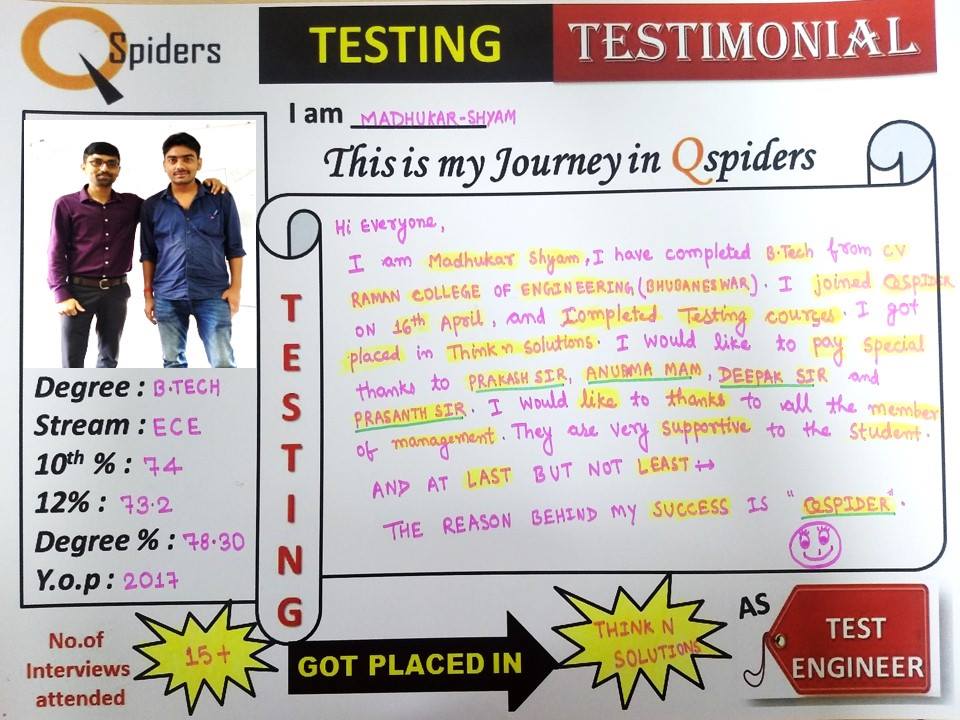 QSpiders
TESTING TESTIMONIAL
I am MADHUKAR-SHYAM
This is my Journey in Qspiders
Hi Everyone,
I am Madhukar Shyam, I have completed B.Tech from CV
RAMAN COLLEGE OF ENGINEERING (BHUBANESWAR). I joined QSPIDER
ON 16th April, and Completed Testing courses. I got
placed in Think n solutions. I would like to pay special
thanks to PRAKASH SIR, ANUPMA MAM, DEEPAK SIR and
PRASANTH SIR. I would like to thanks to all the member
of management. They are very supportive to the student.
AND AT LAST BUT NOT LEAST
THE REASON BEHIND MY SUCCESS IS "QSPIDER".
TESTING
Degree : B.TECH
Stream : ECE
10th % : 74
12% : 73.2
Degree % : 78.30
Y.o.p : 2017
No.of
Interviews
attended
15+
GOT PLACED IN
THINK N
SOLUTIONS
AS
TEST
ENGINEER